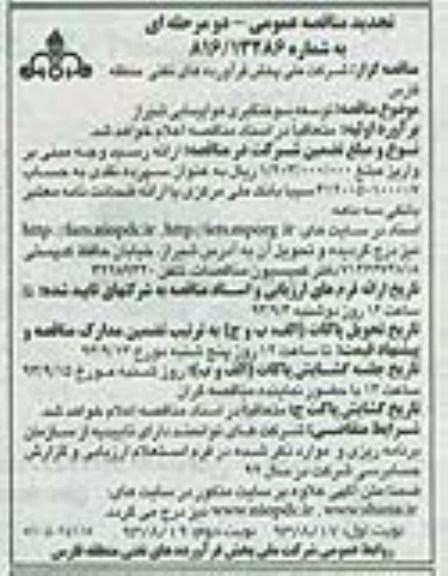 تجدید مناقصه عمومی - دو مرحله ای
به شماره ۸۱۶/۱۳۲۸۶
مناقصه گزار: شرکت ملی پخش فرآورده های نفتی منطقه
فارس
موضوع مناقصه: توسعه سوختگیری هواپیمایی شیراز
برآورد اولیه: متعاقباً در اسناد مناقصه اعلام خواهد شد.
نوع و مبلغ تضمین شرکت در مناقصه: ارائه رسید وجه مبنی بر
واریز مبلغ ریال به عنوان سپرده نقدی به حساب
سیبا بانک ملی مرکزی یا ارائه ضمانت نامه معتبر
بانکی سه ماهه
اسناد در سایت های http://iets.mporg.ir
نیز درج گردیده و تحویل آن به آدرس شیراز، خیابان حافظ
دفتر کمیسیون مناقصات، تلفن
تاریخ ارائه فرم های ارزیابی و اسناد مناقصه به شرکتهای تایید شده: تا
ساعت ۱۲ روز دوشنبه
تاریخ تحویل پاکات (الف، ب و ج) به ترتیب تضمین مدارک مناقصه و
پیشنهاد قیمت: تا ساعت ۱۲ روز پنج شنبه مورخ ۹۳/۹/۱۳
تاریخ جلسه گشایش پاکات (الف و ب): روز شنبه مورخ ۹۳/۹/۱۵
ساعت ۱۲ با حضور نماینده مناقصه گران
تاریخ گشایش پاکت ج: متعاقباً در اسناد مناقصه اعلام خواهد شد.
شرایط متقاضی: شرکت های توانمند دارای تاییدیه از سازمان
برنامه ریزی و موارد ذکر شده در فرم استعلام ارزیابی و گزارش
حسابرسی شرکت در سال ۹۲
ضمناً متن آگهی علاوه بر سایت مذکور در سایت های:
www.niopdc.ir , www.shana.ir نیز درج می گردد.
نوبت اول: ۹۳/۸/۱۷ نوبت دوم: ۹۳/۸/۱۹
روابط عمومی شرکت ملی پخش فرآورده های نفتی منطقه فارس